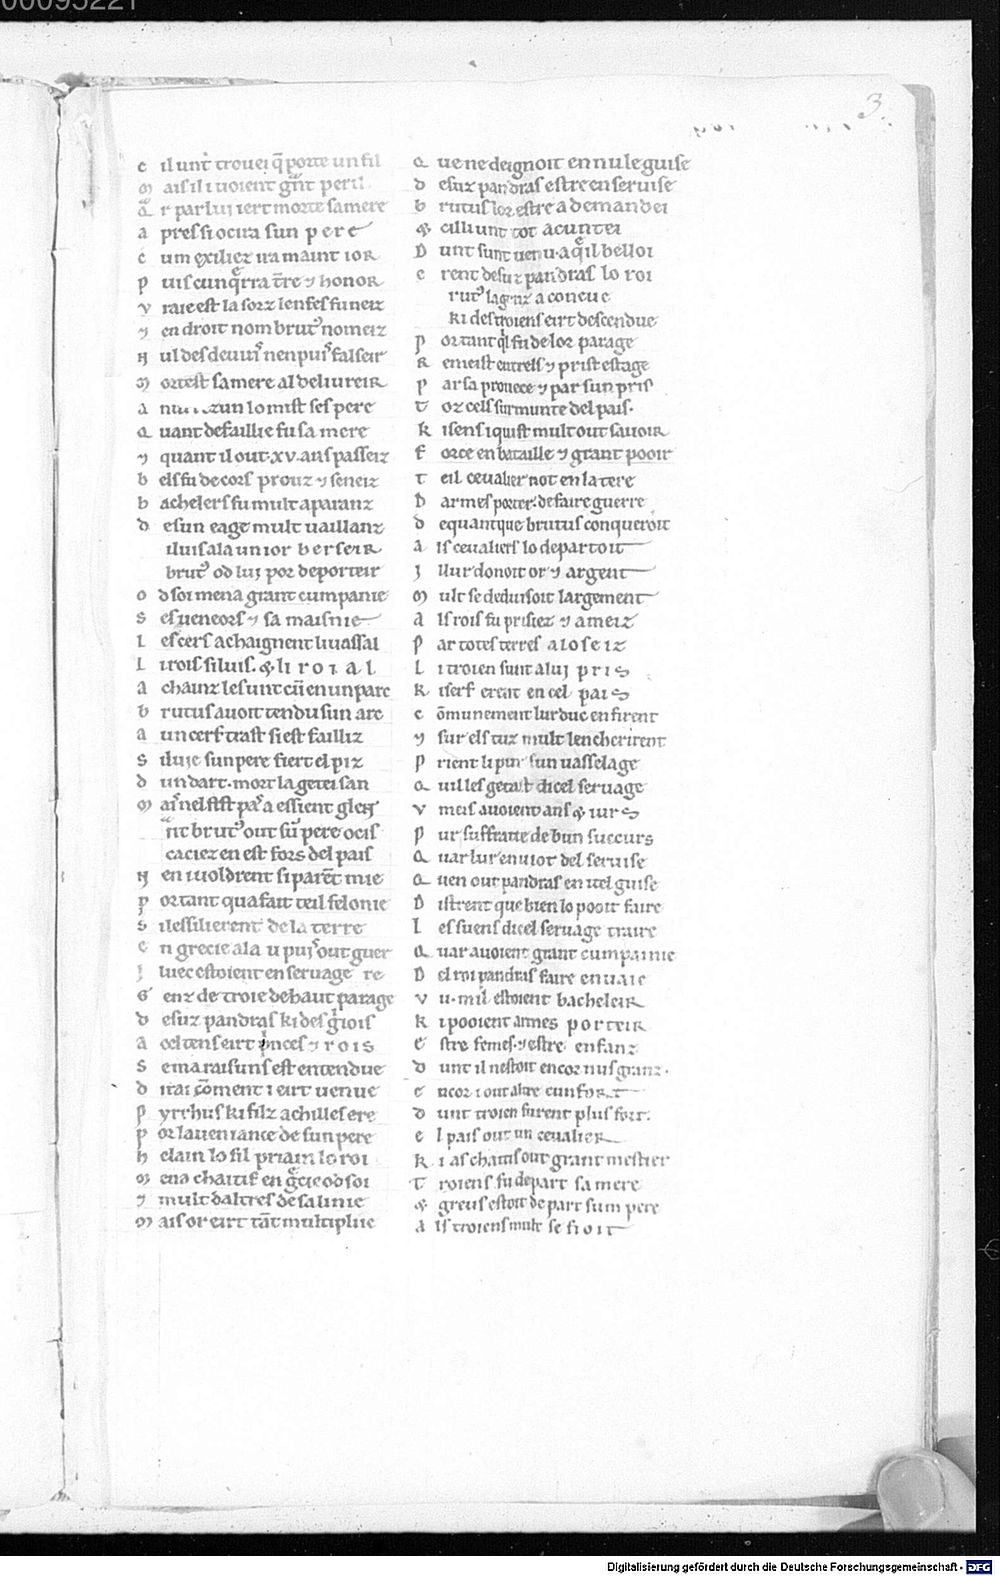 00095221
3
c il unt trouei q̄ porte un fil
m ais il i uoient gͣnt peril
Qͣ r par lui iert morte sa mere
a pres si ocira sun pere
c um exiliez ira maint ior
p uis cunqͥrra t̄re ⁊ honor
v raie est la sorz lenfes fu neiz
⁊ en droit nom brutꝰ nomeiz
N ul des deuinꝰ nen puiꝰ falseir
m ort est sa mere al deliureir
a lo mist ses pere
Q uant defaillie fu sa mere
⁊ quant il out .xv. ans passeiz
b els fu de cors prouz ⁊ seneiz
b achelers fu mult aparanz
d e sun eage mult uaillanz
iluis ala un ior berseir
brutꝰ od lui por deporteir
o d soi mena grant cumpanie
s es ueneors ⁊ sa maisnie
l es cers achaignent li uassal
l i rois siluis. ⁊ li roial
a chainz les unt cū en un parc
b rutus auoit tendu sun arc
a un cerf trast si est failliz
s iluie sun pere fiert el piz
d un dart. mort la getei san
m aiꝰ nel fist paꝰ a essient gleɳ
nt brutꝰ out sū pere ocis
caciez en est fors del pais
N en i uoldrent si parēt mie
p or tant qua fait teil felonie
s i lessilierent de la terre
e n grecie ala u puiꝰ out guer
j luec estoient en seruage re
G enz de troie de haut parage
d esuz pandras ki des gͥiois
a cel tens eirt pͥnces ⁊ rois
S e ma raisuns est entendue
d irai cōment i eirt uenue
p yrrhus ki filz achilles ere
p or la ueniance de sun pere
h elain lo fil priain lo roi
m ena chaitif en gͥcie od soi
⁊ mult daltres de sa linie
m ais or eirt tāt multiplie
Q ue ne deignoit en nule guise
d esuz pandras estre en seruise
b rutus lor estre a demandei
⁊ cil li unt tot acuntei
D unt sunt uenu. a qͥil belloi
e rent desuz pandras lo roi
rutꝰ la genz a coneue
ki des troiens eirt descendue
p or tant qͥl fu de lor parage
R emeist entrels ⁊ prist estage
p ar sa prouece ⁊ par sun pris
t oz cels surmunte del pais.
k i sens i quist mult out sauoir
f orce en bataille ⁊ grant pooir
t eil ceualier not en la tere
D armes porter. de faire guerre
d equantque brutus conqueroit
a ls ceualiers lo departoit
j l lur donoit or ⁊ argent
m ult se deduisoit largement
a ls rois fu prisiez ⁊ ameiz
p ar totes terres aloseiz
l i troien sunt a lui pris
k i serf erent en cel pais
c ōmunement lur duc en firent
⁊ sur els tuz mult lencherirent
p rient li pur sun uasselage
Q uil les getast dicel seruage
v meis auoient ans ⁊ iurs
p ur suffraite de bun succurs
Q uar lur enuiot del seruise
Q uen out pandras en itel guise
D istrent que bien lo pooit faire
l es suens dicel seruage traire
Q uar auoient grant cumpainie
D el roi pandras faire enuaie
v ii. mil estoient bacheleir
k i pooient armes porteir
e stre femes. ⁊ estre enfanz
d unt il nestoit encor nus granz.
e ncor i out altre cunfort
d unt troien furent plus fort.
e l pais out un ceualier
k i as chatis out grant mestier
t roiens fu de part sa mere
⁊ greus estoit de part sum pere
a ls troiens mult se fioit
Digitalisierung gefördert durch die Deutsche Forschungsgemeinschaft - DFG